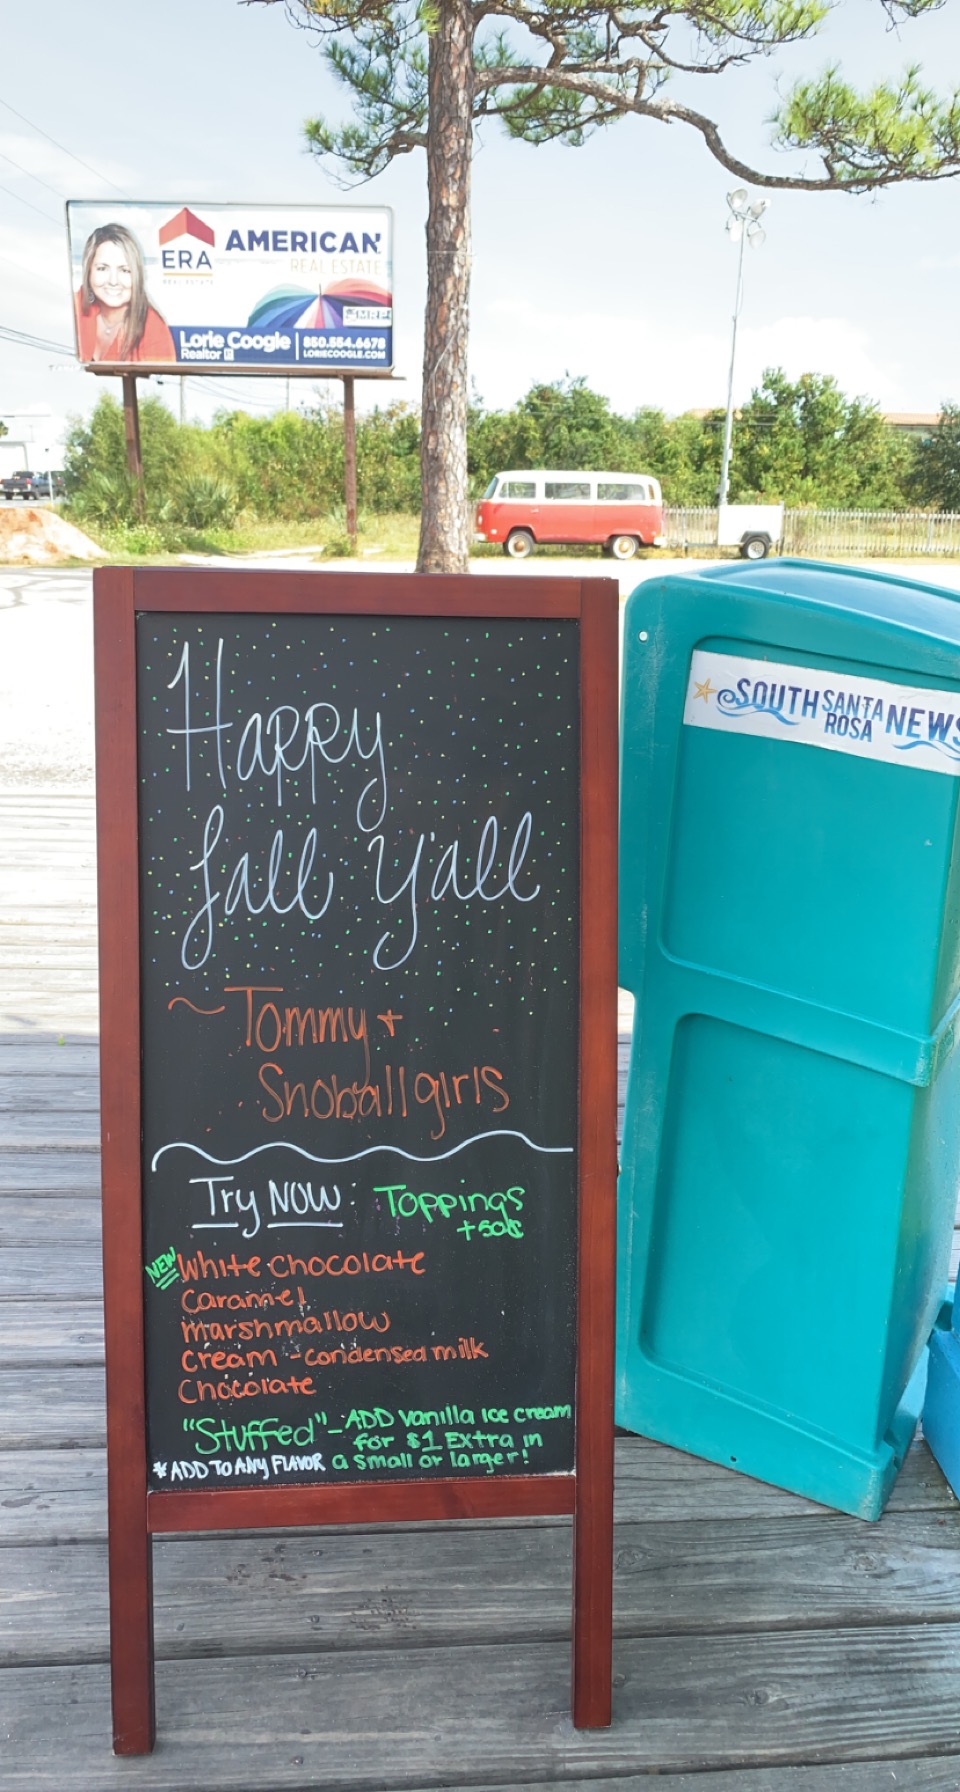 ERA
REAL ESTATE
AMERICAN
REAL ESTATE
MRP
Lorie Coogle
Realtor
850.554.6678
LORIECOOGLE.COM
SOUTH SANTA ROSA NEWS
Happy
fall y'all
~Tommy +
Snoball girls
Try NOW: Toppings
+50¢
NEW White Chocolate
Caramel
Marshmallow
Cream - condensed milk
Chocolate
"Stuffed" - ADD vanilla Ice cream
for $1 Extra in
* ADD TO ANY FLAVOR a small or larger!